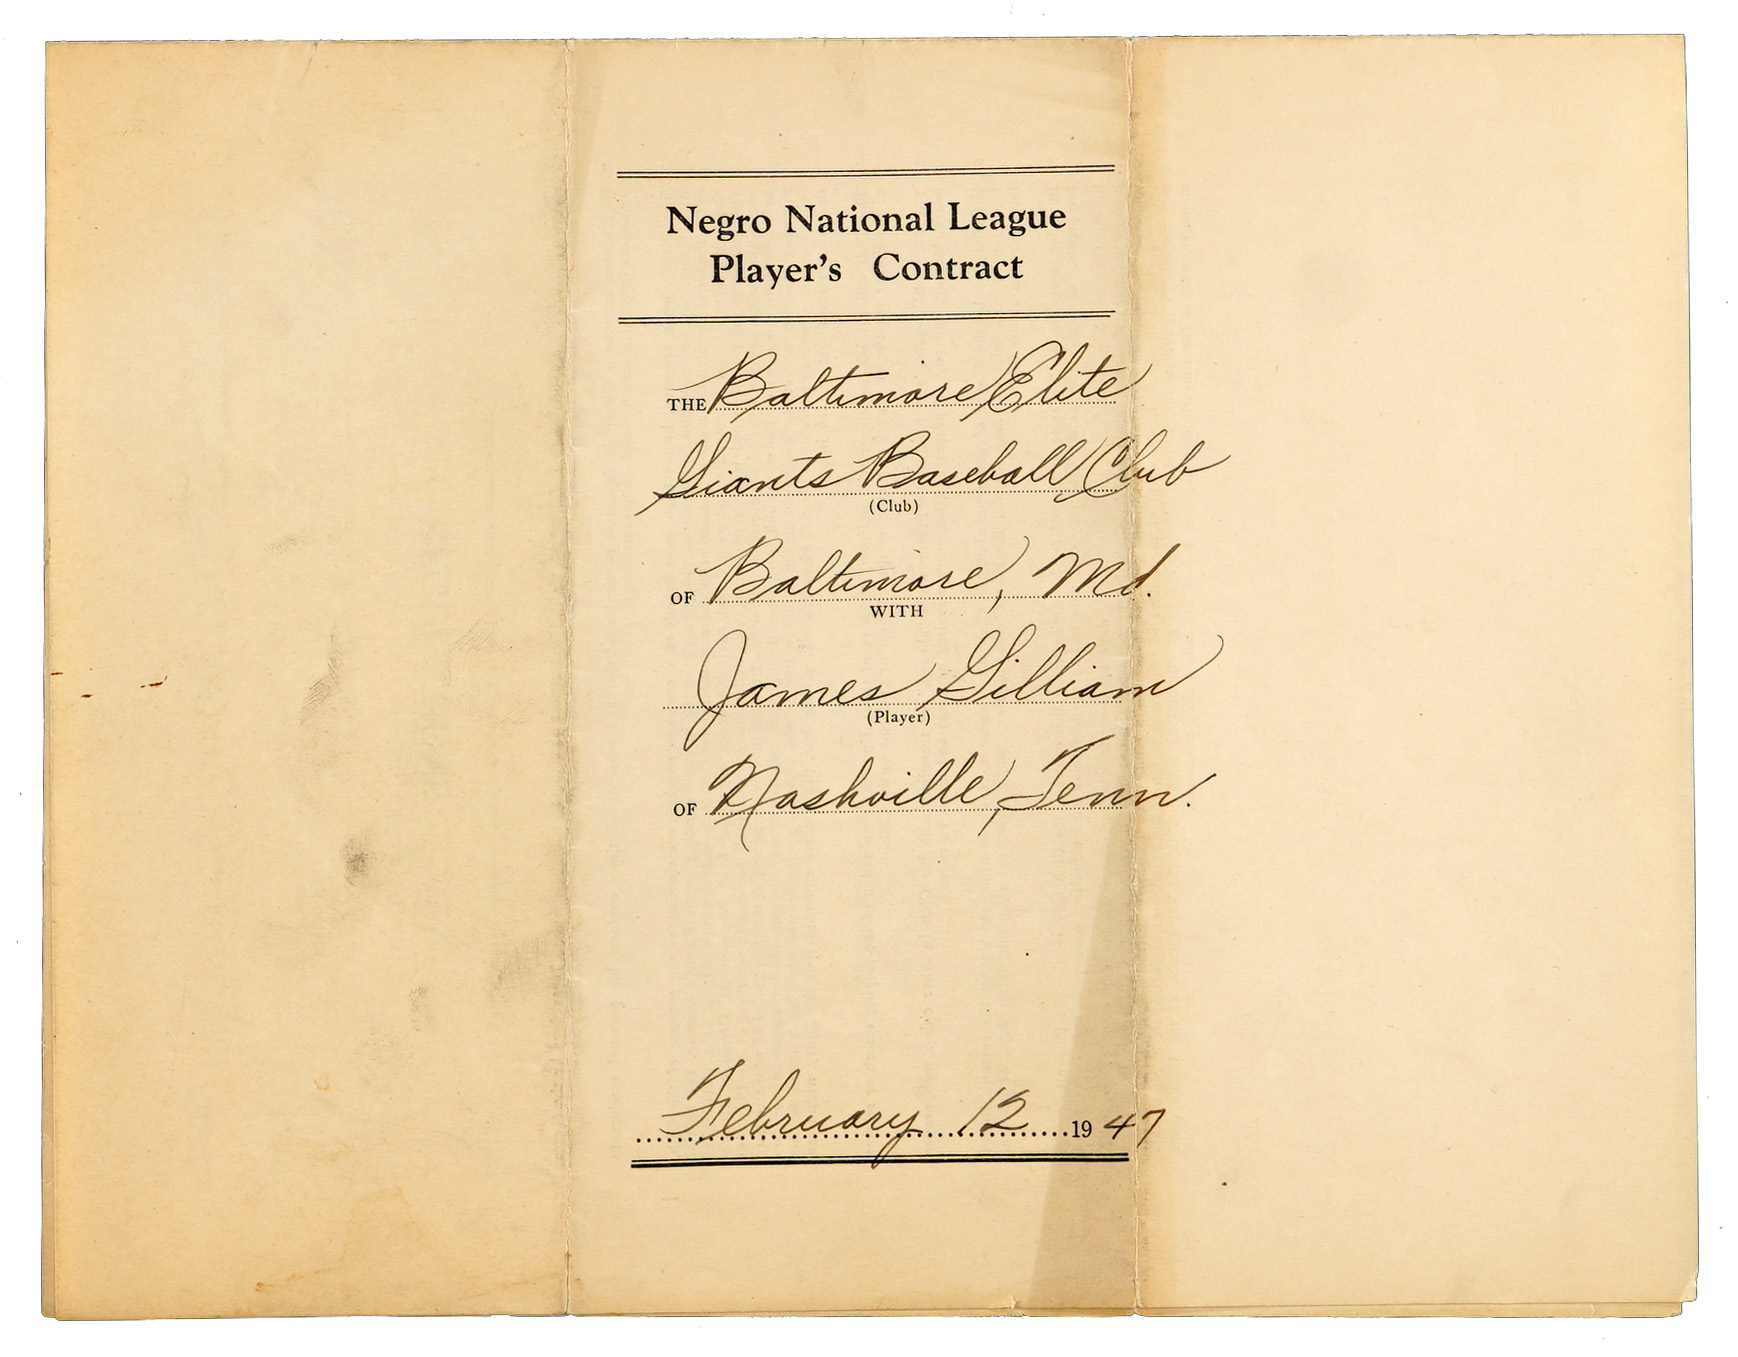 Negro National League
Player's Contract
THE Baltimore Elite
Giants Baseball Club
(Club)
OF Baltimore, Md.
WITH
James Gilliam
(Player)
OF Nashville, Tenn.
February 12 1947